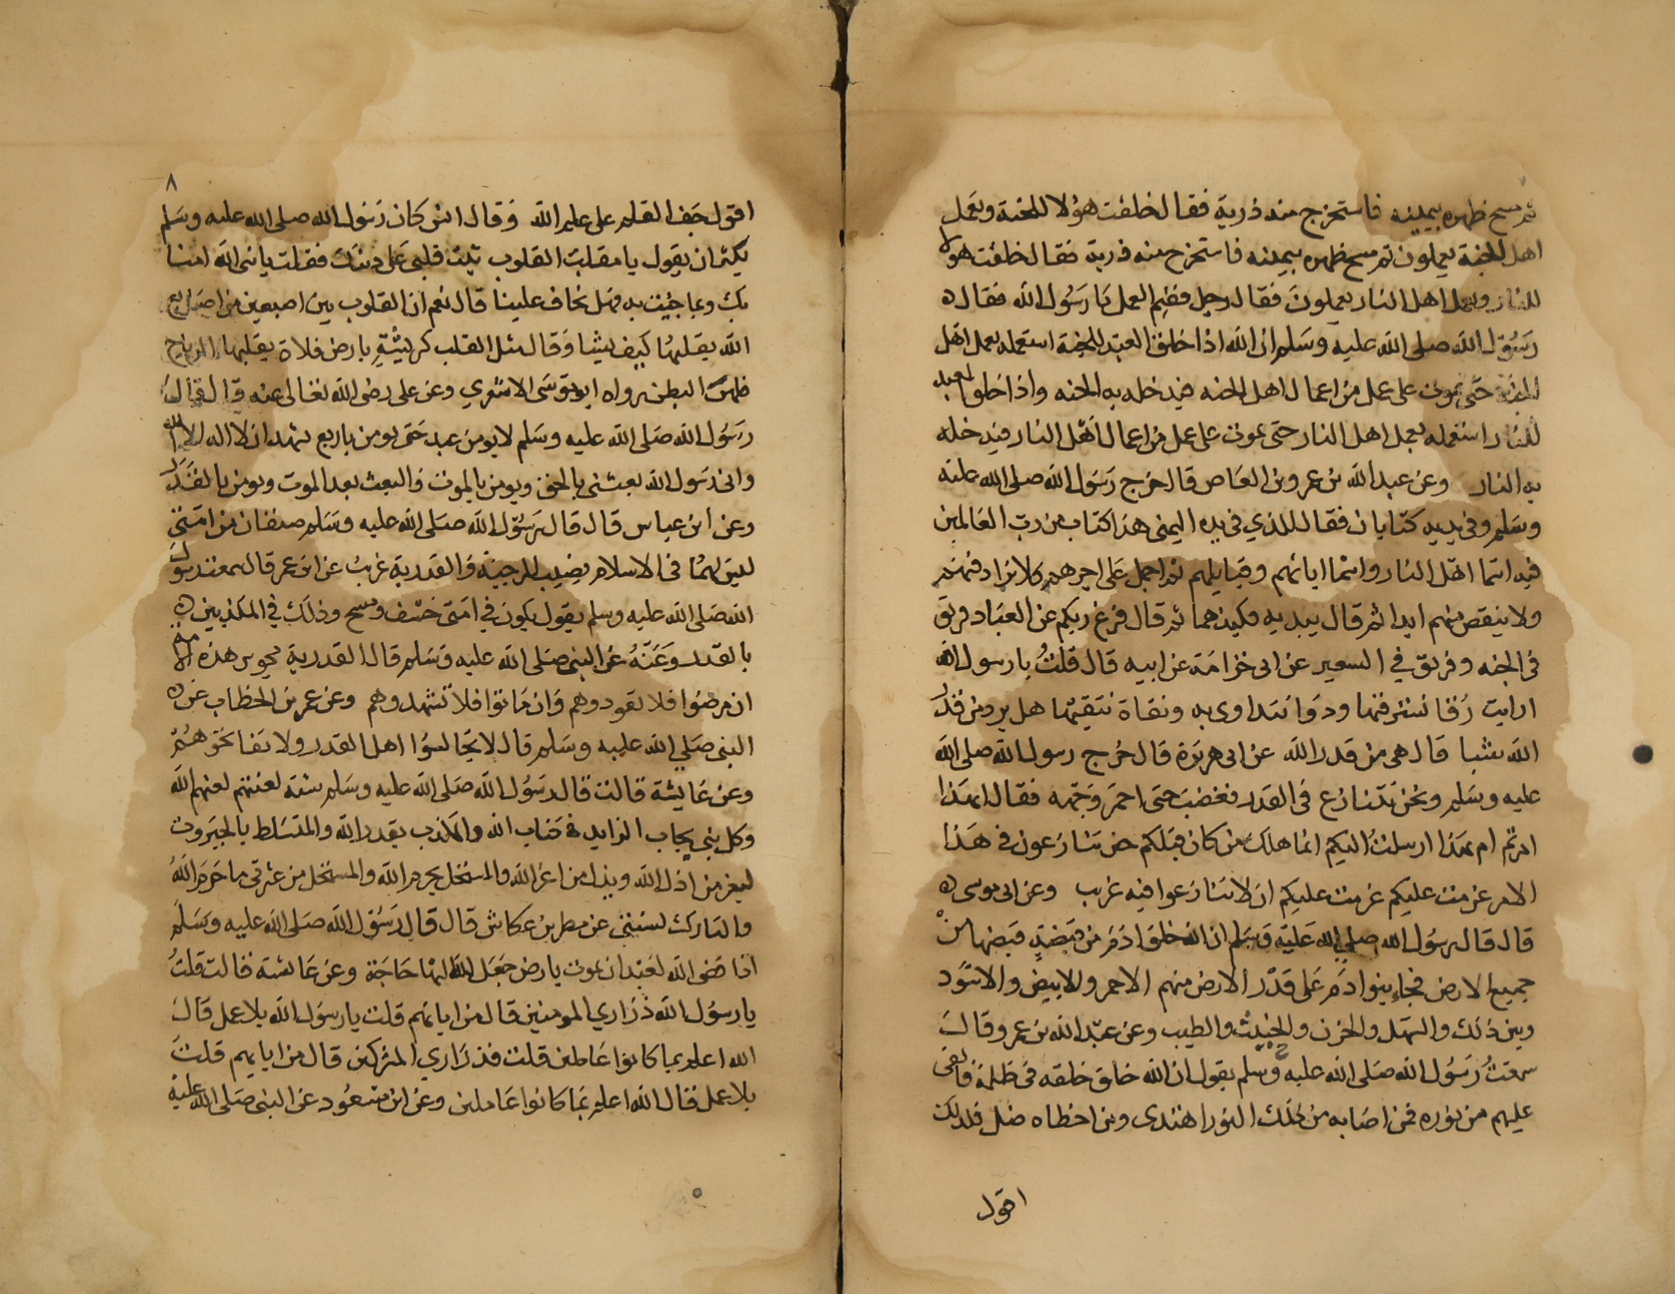 ثم مسح ظهره بيمينه فاستخرج منه ذرية فقال خلقت هؤلا للجنة وبعمل
اهل الجنة يعملون ثم مسح ظهره بيمينه فاستخرج منه ذرية فقال خلقت هولا
للنار وبعمل اهل النار يعملون فقال رجل ففيم العمل يا رسول الله فقال
رسول الله صلى الله عليه وسلم ان الله اذا خلق العبد للجنة استعمله بعمل اهل
الجنة حتى يموت على عمل من اعمال اهل الجنه فيدخله به الجنه واذا خلق العبد
للنار استعمله بعمل اهل النار حتى يموت على عمل من اعمال اهل النار فيدخله
به النار وعن عبد الله بن عمرو بن العاص قال خرج رسول الله صلى الله عليه
وسلم وفي يديه كتابان فقال للذي في يده اليمنى هذا كتاب من رب العالمين
فيه اسما اهل النار واسما ابائهم وقبايلهم ثم اجمل على اخرهم فلا يزاد فيهم
ولا ينقص منهم ابدا ثم قال بيديه فنبذهما ثم قال فرغ ربكم من العباد فريق
في الجنه وفريق في السعير عن ابى خزامة عن ابيه قال قلت يا رسول الله
ارايت رقا نسترقيها ودوا نتداوى به وتقاة نتقيها هل يرد من قدر
الله شيا قال هى من قدر الله عن ابى هريرة قال خرج رسول الله صلى الله
عليه وسلم ونحن نتنازع فى القدر فغضب حتى احمر وجهه فقال ابهذا
امرتم ام بهذا ارسلت اليكم انما هلك من كان قبلكم حين تنازعون فى هذا
الامر عزمت عليكم عزمت عليكم ان لا تنازعوا فيه غريب وعن ابى موسى
قال قال رسول الله صلى الله عليه وسلم ان الله خلق ادم من قبضة قبضها من
جميع الارض فجاء بنوا ادم على قدر الارض منهم الاحمر والابيض والاسود
وبين ذلك والسهل والحزن والخبيث والطيب وعن عبد الله بن عمرو قال
سمعت رسول الله صلى الله عليه وسلم يقول ان الله خلق خلقه فى ظلمة فالقى
عليهم من نوره فمن اصابه من ذلك النور اهتدى ومن اخطاه ضل فلذلك
اقول
٨
اقول جف القلم على علم الله وقال انس كان رسول الله صلى الله عليه وسلم
يكثر ان يقول يا مقلب القلوب ثبت قلبى على دينك فقلت يا نبى الله امنا
بك وبما جيت به فهل تخاف علينا قال نعم ان القلوب بين اصبعين من اصابع
الله يقلبها كيف يشا وقال مثل القلب كريشة بارض فلاة يقلبها الرياح
ظهر البطن رواه ابو موسى الاشعري وعن على رضى الله تعالى عنه قال قال
رسول الله صلى الله عليه وسلم لا يومن عبد حتى يومن باربع يشهد ان لا اله الا الله
وانى رسول الله بعثنى بالحق ويومن بالموت والبعث بعد الموت ويومن بالقدر
وعن ابن عباس قال قال رسول الله صلى الله عليه وسلم صنفان من امتى
ليس لهما فى الاسلام نصيب المرجية والقدرية غريب عن ابن عمر قال سمعت رسول
الله صلى الله عليه وسلم يقول يكون في امتى خسف ومسح وذلك في المكذبين
بالقدر وعنه عن النبى صلى الله عليه وسلم قال القدرية مجوس هذه الامة
ان مرضوا فلا تعودوهم وان ماتوا فلا تشهدوهم وعن عمر بن الخطاب عن
النبى صلى الله عليه وسلم قال لا تجالسوا اهل القدر ولا تفاتحوهم
وعن عايشة قالت قال رسول الله صلى الله عليه وسلم ستة لعنتهم لعنهم الله
وكل نبى يجاب الزايد في كتاب الله والمكذب بقدر الله والمتسلط بالجبروت
ليعز من اذل الله ويذل من اعز الله والمستحل بحرم الله والمستحل من عترتى ما حرم الله
والتارك لسنتى عن مطر بن عكاش قال قال رسول الله صلى الله عليه وسلم
اذا قضى الله لعبد ان يموت بارض جعل الله لها حاجة وعن عائشة قالت قلت
يا رسول الله ذراري المومنين قال من ابائهم قلت يا رسول الله بلا عمل قال
الله اعلم بما كانوا عاملين قلت فذراري المشركين قال من ابايهم قلت
بلا عمل قال الله اعلم بما كانوا عاملين وعن ابن مسعود عن النبى صلى الله عليه